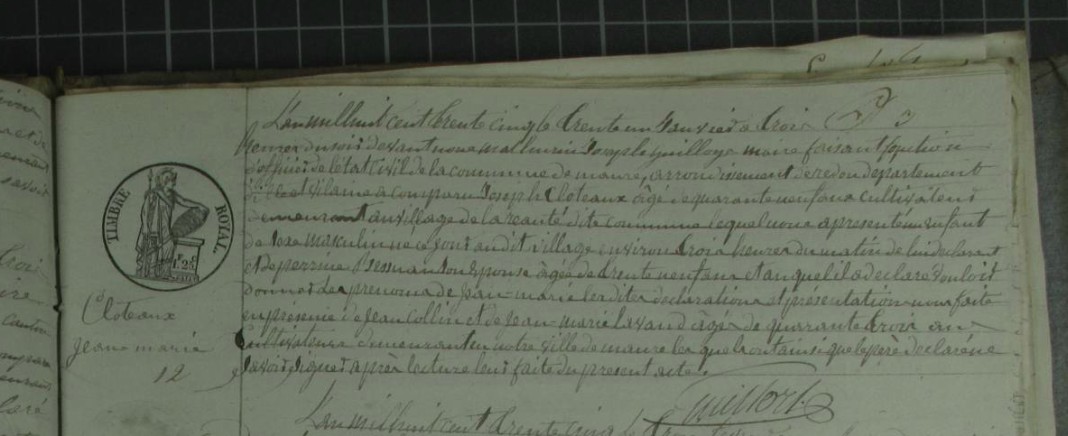 L'an mil huit cent trente cinq le trente un Janvier à trois
heures du soir devant nous mathurin Joseph guilloys maire faisant fonction
d'officier de l'état civil de la commune de maure, arrondissement de redon departement
d'ille et vilaine à comparu Joseph Cloteaux âgé de quarante neuf ans cultivateur
demeurant au village de la reauté dite commune lequel nous a presenté un enfant
de sexe masculin né ce jour audit village environ trois heures du matin de lui declarant
et de perrine son Epouse âgée de trente neuf ans et auquel il a declaré vouloir
donner les prenoms de jean-marie lesdites declaration et présentation nous faite
en presence de Jean Collin et de Jean-marie âgés de quarante trois ans
cultivateurs demeurant en notre ville de maure lesquels ont ainsi que le père déclaré ne
savoir signer après lecture leur faite du present acte.
TIMBRE ROYAL.
1 F. 25 C
Cloteaux
jean-marie
12
L'an mil huit cent trente cinq le